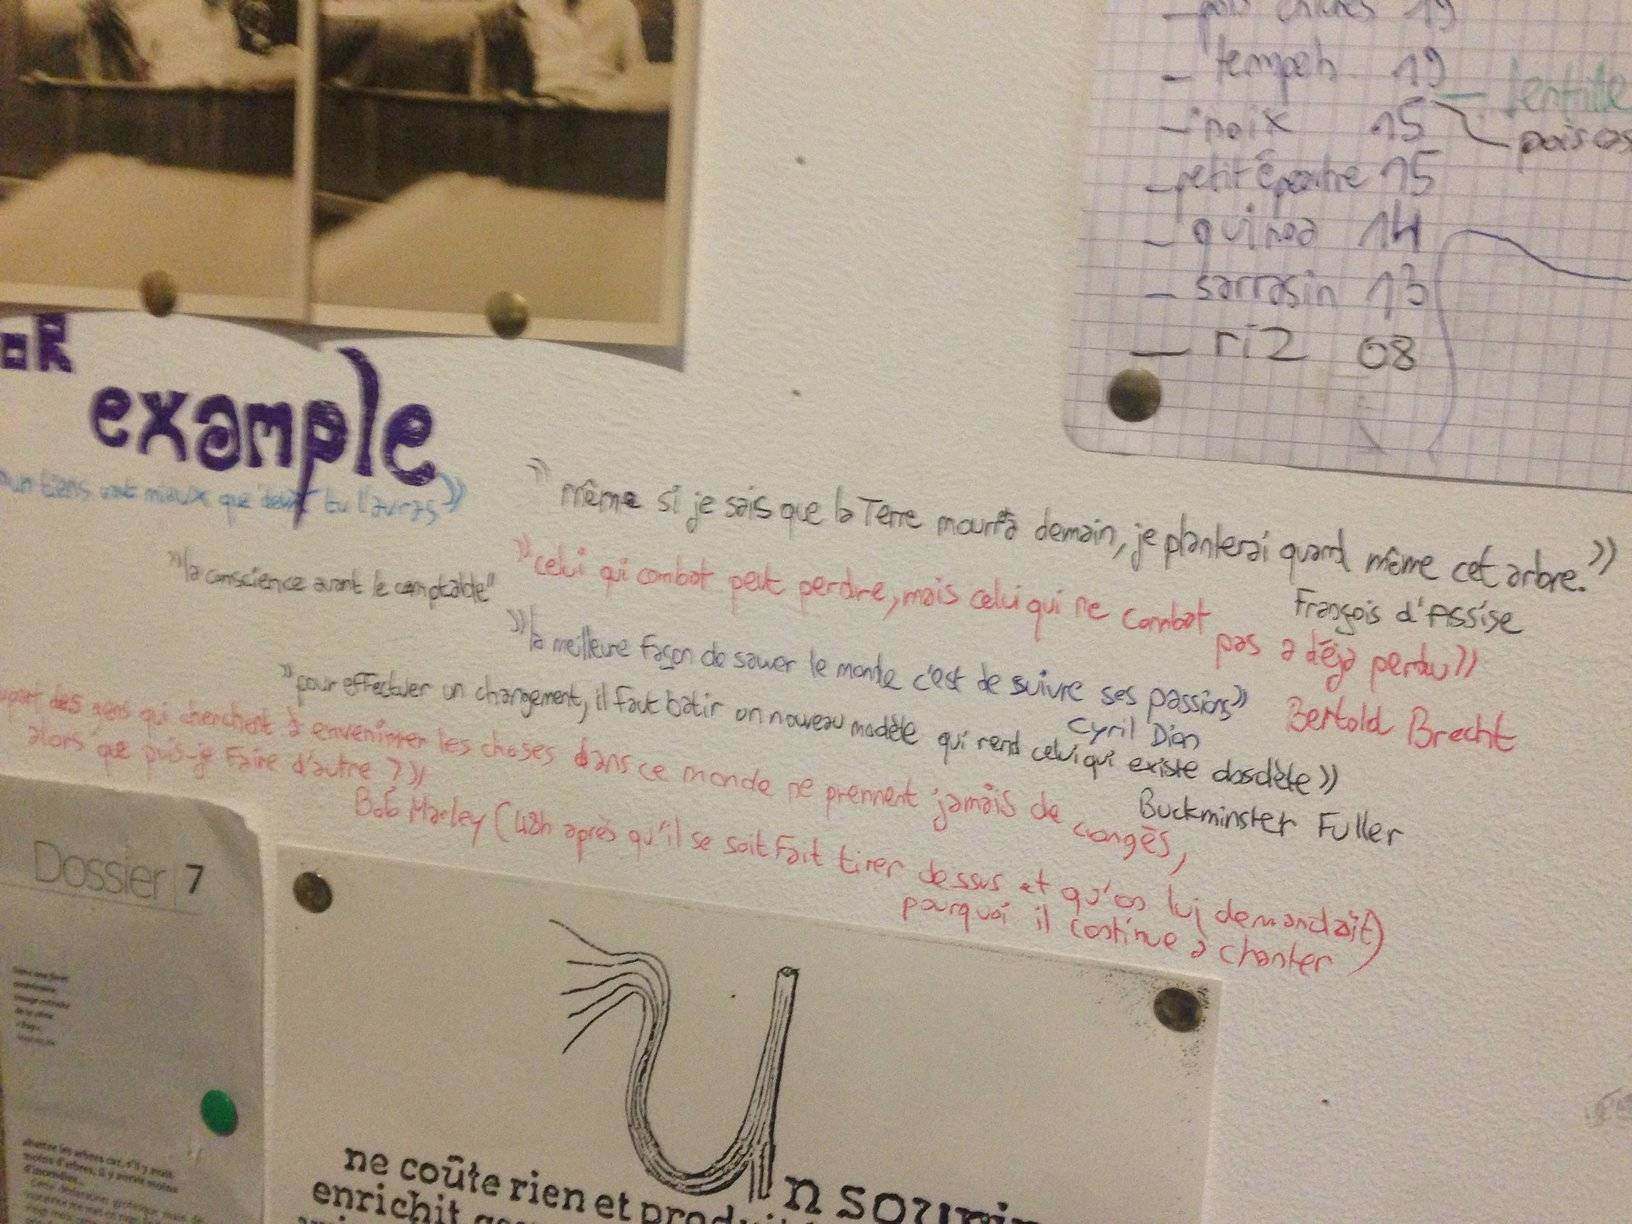 pois chiches 19
– tempeh 19 – lentille
– noix 15 pois cas
– petit épeautre 15
– quinoa 14
– sarrasin 13
– riz 08
OR
example
un tiens vaut mieux que deux tu l'auras »
" même si je sais que la Terre mourra demain, je planterai quand même cet arbre. »
François d'Assise
"la conscience avant le comptable"
" celui qui combat peut perdre, mais celui qui ne combat
pas a déjà perdu »
Bertold Brecht
" la meilleure façon de sauver le monde c'est de suivre ses passions »
Cyril Dion
" pour effectuer un changement, il faut batir un nouveau modèle qui rend celui qui existe obsolète »
Buckminster Fuller
des gens qui cherchent à envenimer les choses dans ce monde ne prennent jamais de congés,
alors que puis-je faire d'autre ? »
Bob Marley (48h après qu'il se soit fait tirer dessus et qu'on lui demandait)
pourquoi il continue à chanter
Dossier 7
Un sourir
ne coûte rien et produit
enrichit